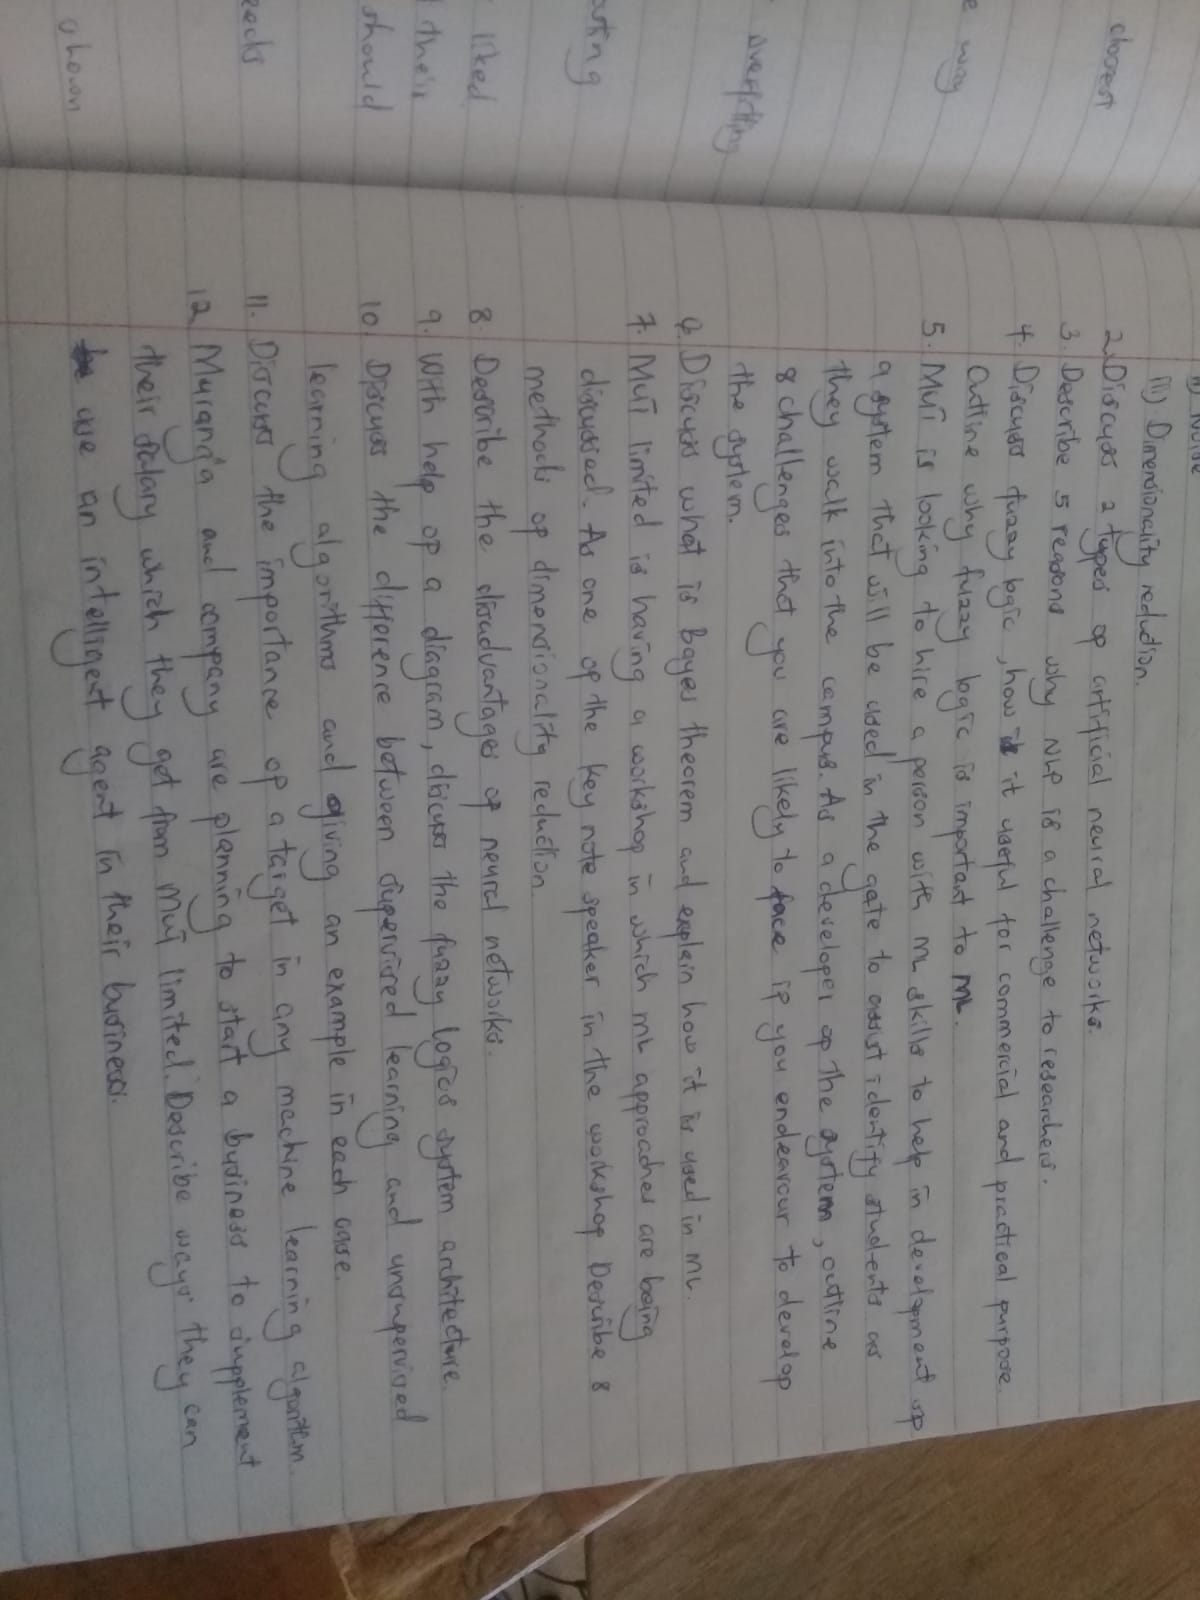 closest
e way
overfitting
outing
liked
their
should
eeds
shown
ii) Noise
iii) Dimensionality reduction.
2. Discuss 2 types of artificial neural networks.
3. Describe 5 reasons why NLP is a challenge to researchers.
4. Discuss fuzzy logic, how it useful for commercial and practical purpose.
Outline why fuzzy logic is important to ML.
5. MUT is looking to hire a person with ML skills to help in development of
a system that will be used in the gate to assist identify students as
they walk into the campus. As a developer of the system, outline
8 challenges that you are likely to face if you endeavour to develop
the system.
6. Discuss what is Bayes theorem and explain how it is used in ML.
7. MUT limited is having a workshop in which ML approaches are being
discussed. As one of the key note speaker in the workshop Describe 8
methods of dimensionality reduction.
8. Describe the disadvantages of neural networks.
9. With help of a diagram, discuss the fuzzy logics system architecture.
10. Discuss the difference between supervised learning and unsupervised
learning algorithms and giving an example in each case.
11. Discuss the importance of a target in any machine learning algorithm.
12. Murang'a and company are planning to start a business to supplement
their salary which they get from MUT limited. Describe ways they can
use an intelligent agent in their business.